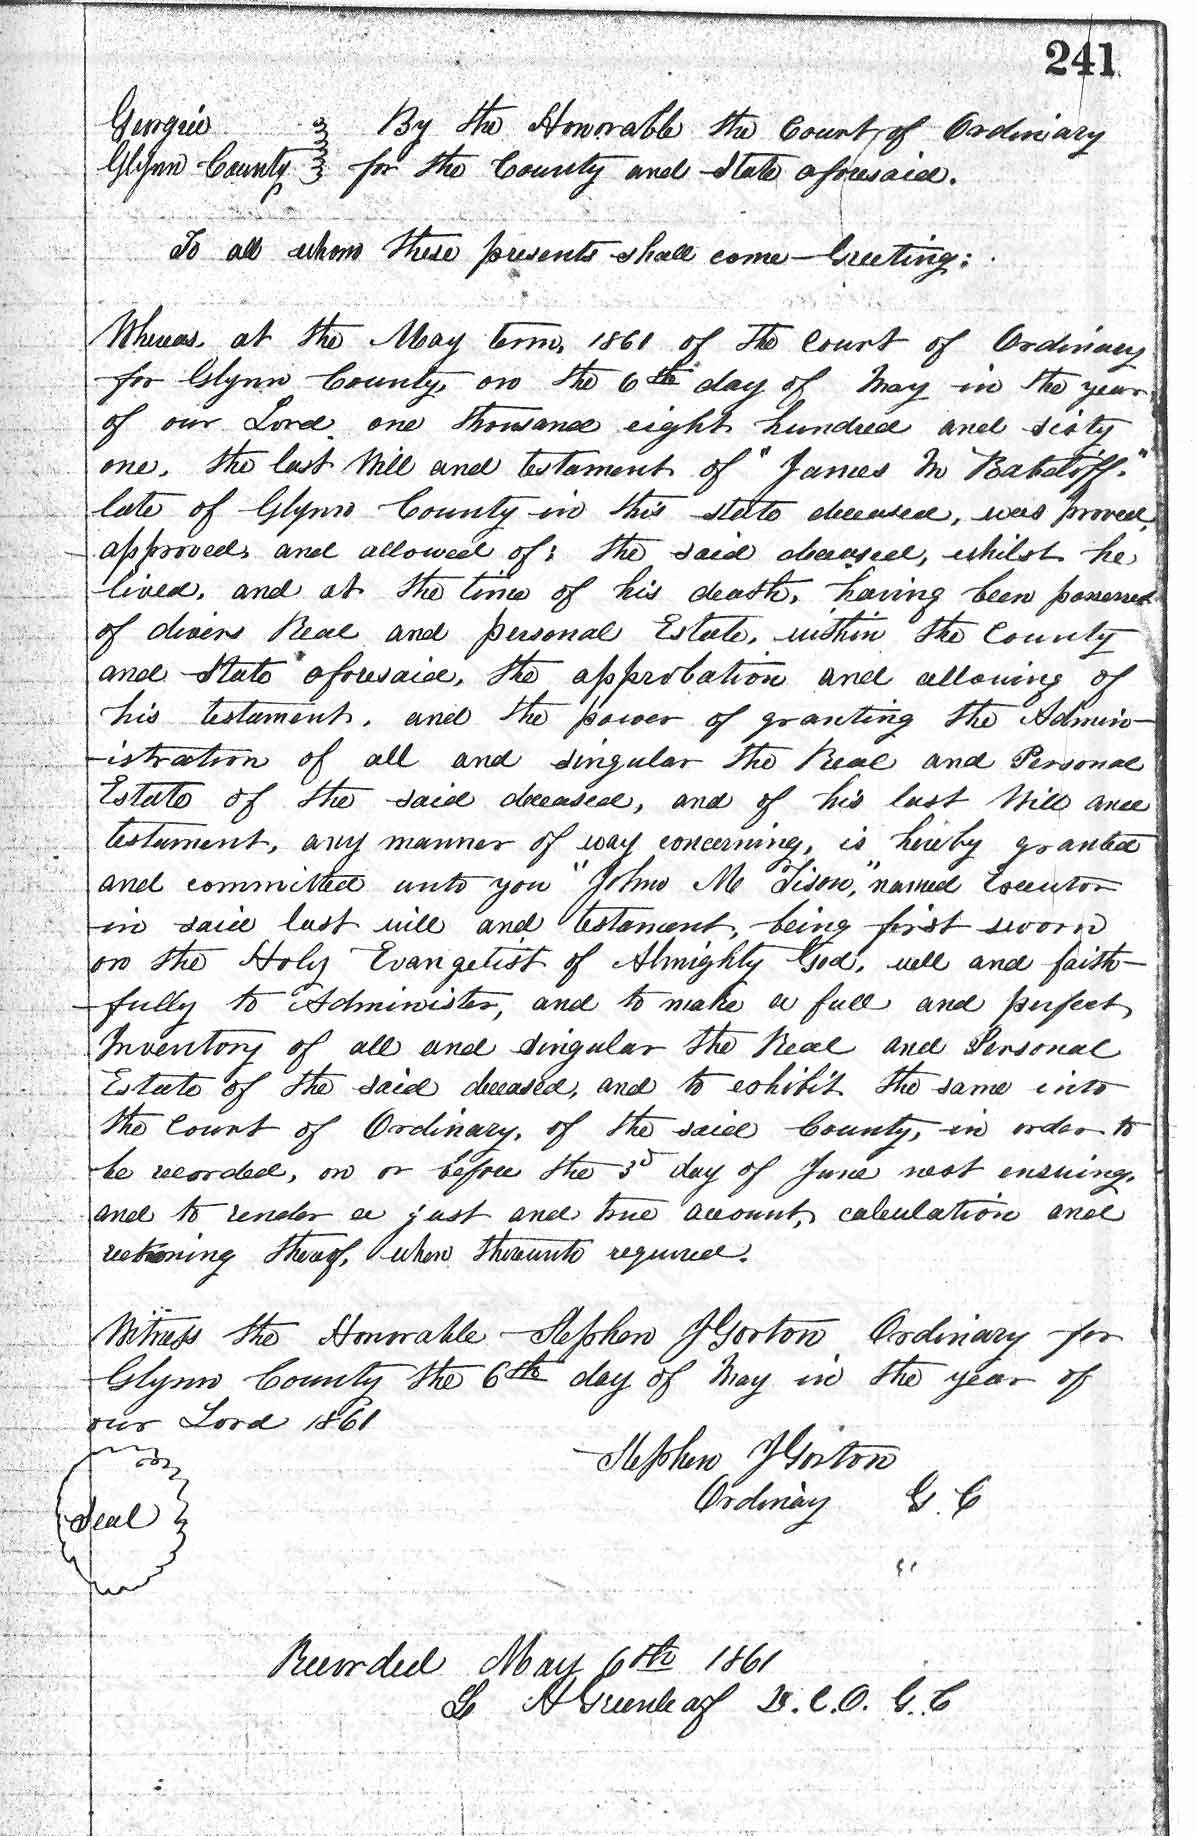 241
Georgia } By the Honorable the Court of Ordinary
Glynn County } for the County and State aforesaid.
To all whom these presents shall come Greeting:
Whereas, at the May term, 1861 of the Court of Ordinary
for Glynn County, on the 6th day of May in the year
of our Lord one thousand eight hundred and sixty
one, the last Will and testament of "James M
late of Glynn County in this state deceased, was proved,
approved, and allowed of; the said deceased, whilst he
lived, and at the time of his death, having been possessed
of divers Real and personal Estate, within the County
and State aforesaid, the approbation and allowing of
his testament, and the power of granting the Admin-
-istration of all and singular the Real and Personal
Estate of the said deceased, and of his last Will and
testament, any manner of way concerning, is hereby granted
and committed unto you "John M Tison," named Executor
in said last will and testament, being first sworn
on the Holy Evangelist of Almighty God, well and faith-
-fully to Administer, and to make a full and perfect
Inventory of all and singular the Real and Personal
Estate of the said deceased, and to exhibit the same into
the Court of Ordinary, of the said County, in order to
be recorded, on or before the 3d day of June next ensuing,
and to render a just and true account, calculation and
reckoning thereof, when thereunto required.
Witness the Honorable Stephen J Gorton Ordinary for
Glynn County the 6th day of May in the year of
our Lord 1861
Stephen J Gorton
Ordinary G. C
Seal
Recorded May 6th 1861
A Greenleaf D. C. O. G. C